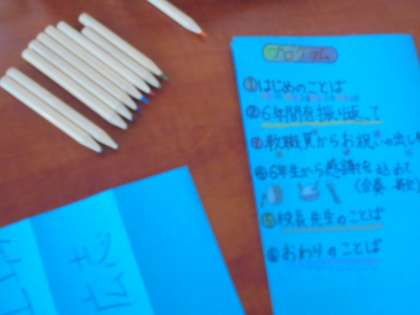 プログラム
①はじめのことば
②6年間を振り返って
③教職員からお祝いの出し
④6年生から感謝を込めて
(合奏・歌)
⑤校長先生のことば
⑥おわりのことば